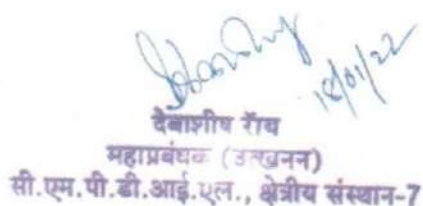 18/01/22
देबाशीष रॉय
महाप्रबंधक (उत्खनन)
सी.एम.पी.डी.आई.एल., क्षेत्रीय संस्थान-7